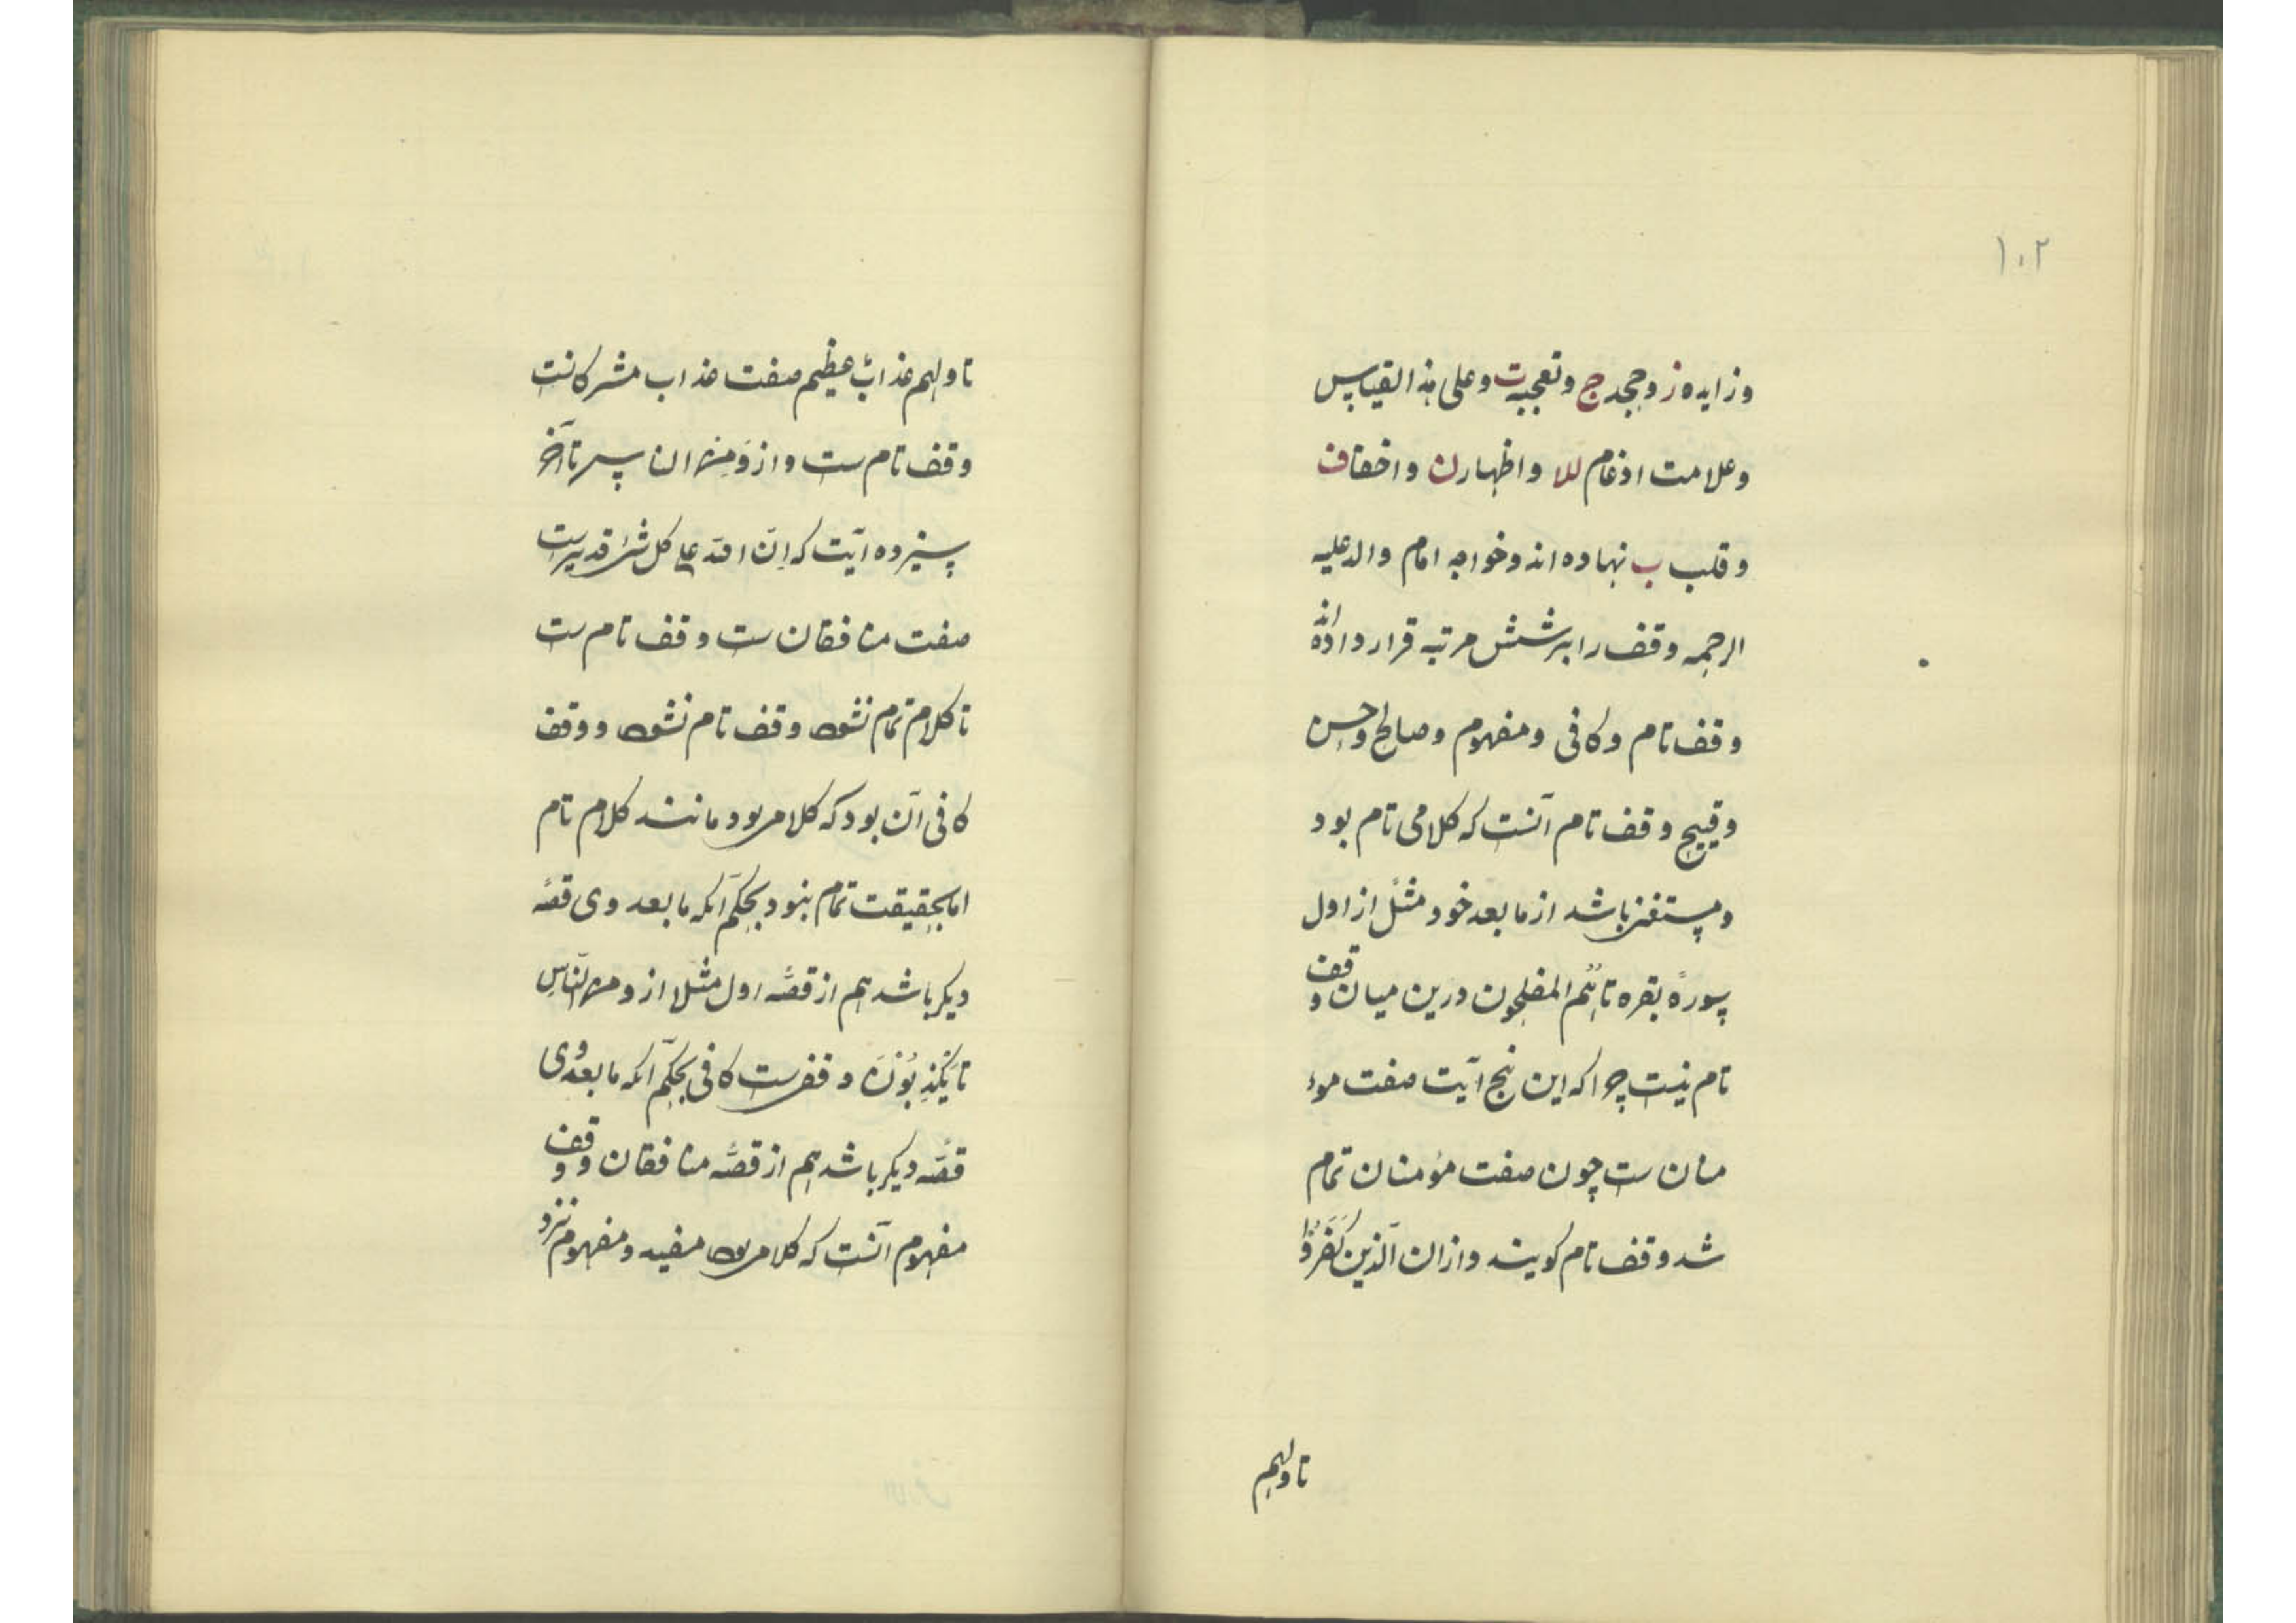 ۱۰۲
وزایده ز وجحد ج وتعجبیه ت وعلی هذا القیاس
وعلامت ادغام للا واظهار ن واخفا ف
وقلب ب نهاده اند وخواجه امام والد علیه
الرحمه وقف را بر شش مرتبه قرار داده اند
وقف تام وکافی ومفهوم وصالح وحسن
وقبیح وقف تام آنست که کلامی تام بود
ومستغنی باشد از ما بعد خود مثل از اول
سورهٔ بقره تا هُم المفلحون درین میان وقف
تام نیست چرا که این پنج آیت صفت موء
منان ست چون صفت مؤمنان تمام
شد وقف تام کویند واز ان الّذین کَفَرُوا
تا ولهم
تا ولهم عذابٌ عظیم صفت عذاب مشرکانست
وقف تام ست واز وَمِنَ الناس تا آخر
سیزده آیت که اِنّ الله علی کل شئ قدیرست
صفت منافقان ست وقف تام ست
تا کلام تمام نشود وقف تام نشود ووقف
کافی آن بود که کلامی بود مانند کلام تام
اما بحقیقت تمام نبود بحکم آنکه ما بعد وی قصّه
دیکر باشد هم از قصّه اول مثلا از ومن النّاسِ
تا یَکْذِبُوْنَ وقفی ست کافی بحکم آنکه ما بعد وی
قصّه دیکر باشد هم از قصّه منافقان ووقف
مفهوم آنست که کلامی بود مفید ومفهوم نزد